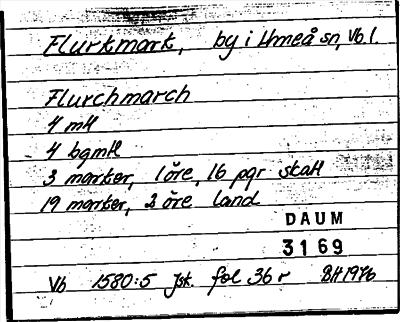 Flurkmark, by i Umeå sn, Vb.l.
Flurchmarch
4 mtl
4 bgmtl
3 marker, 1 öre, 16 pgr skatt
19 marker, 2 öre land
DAUM
3169
Vb 1580:5 Jsk. fol 36 r BH 1976